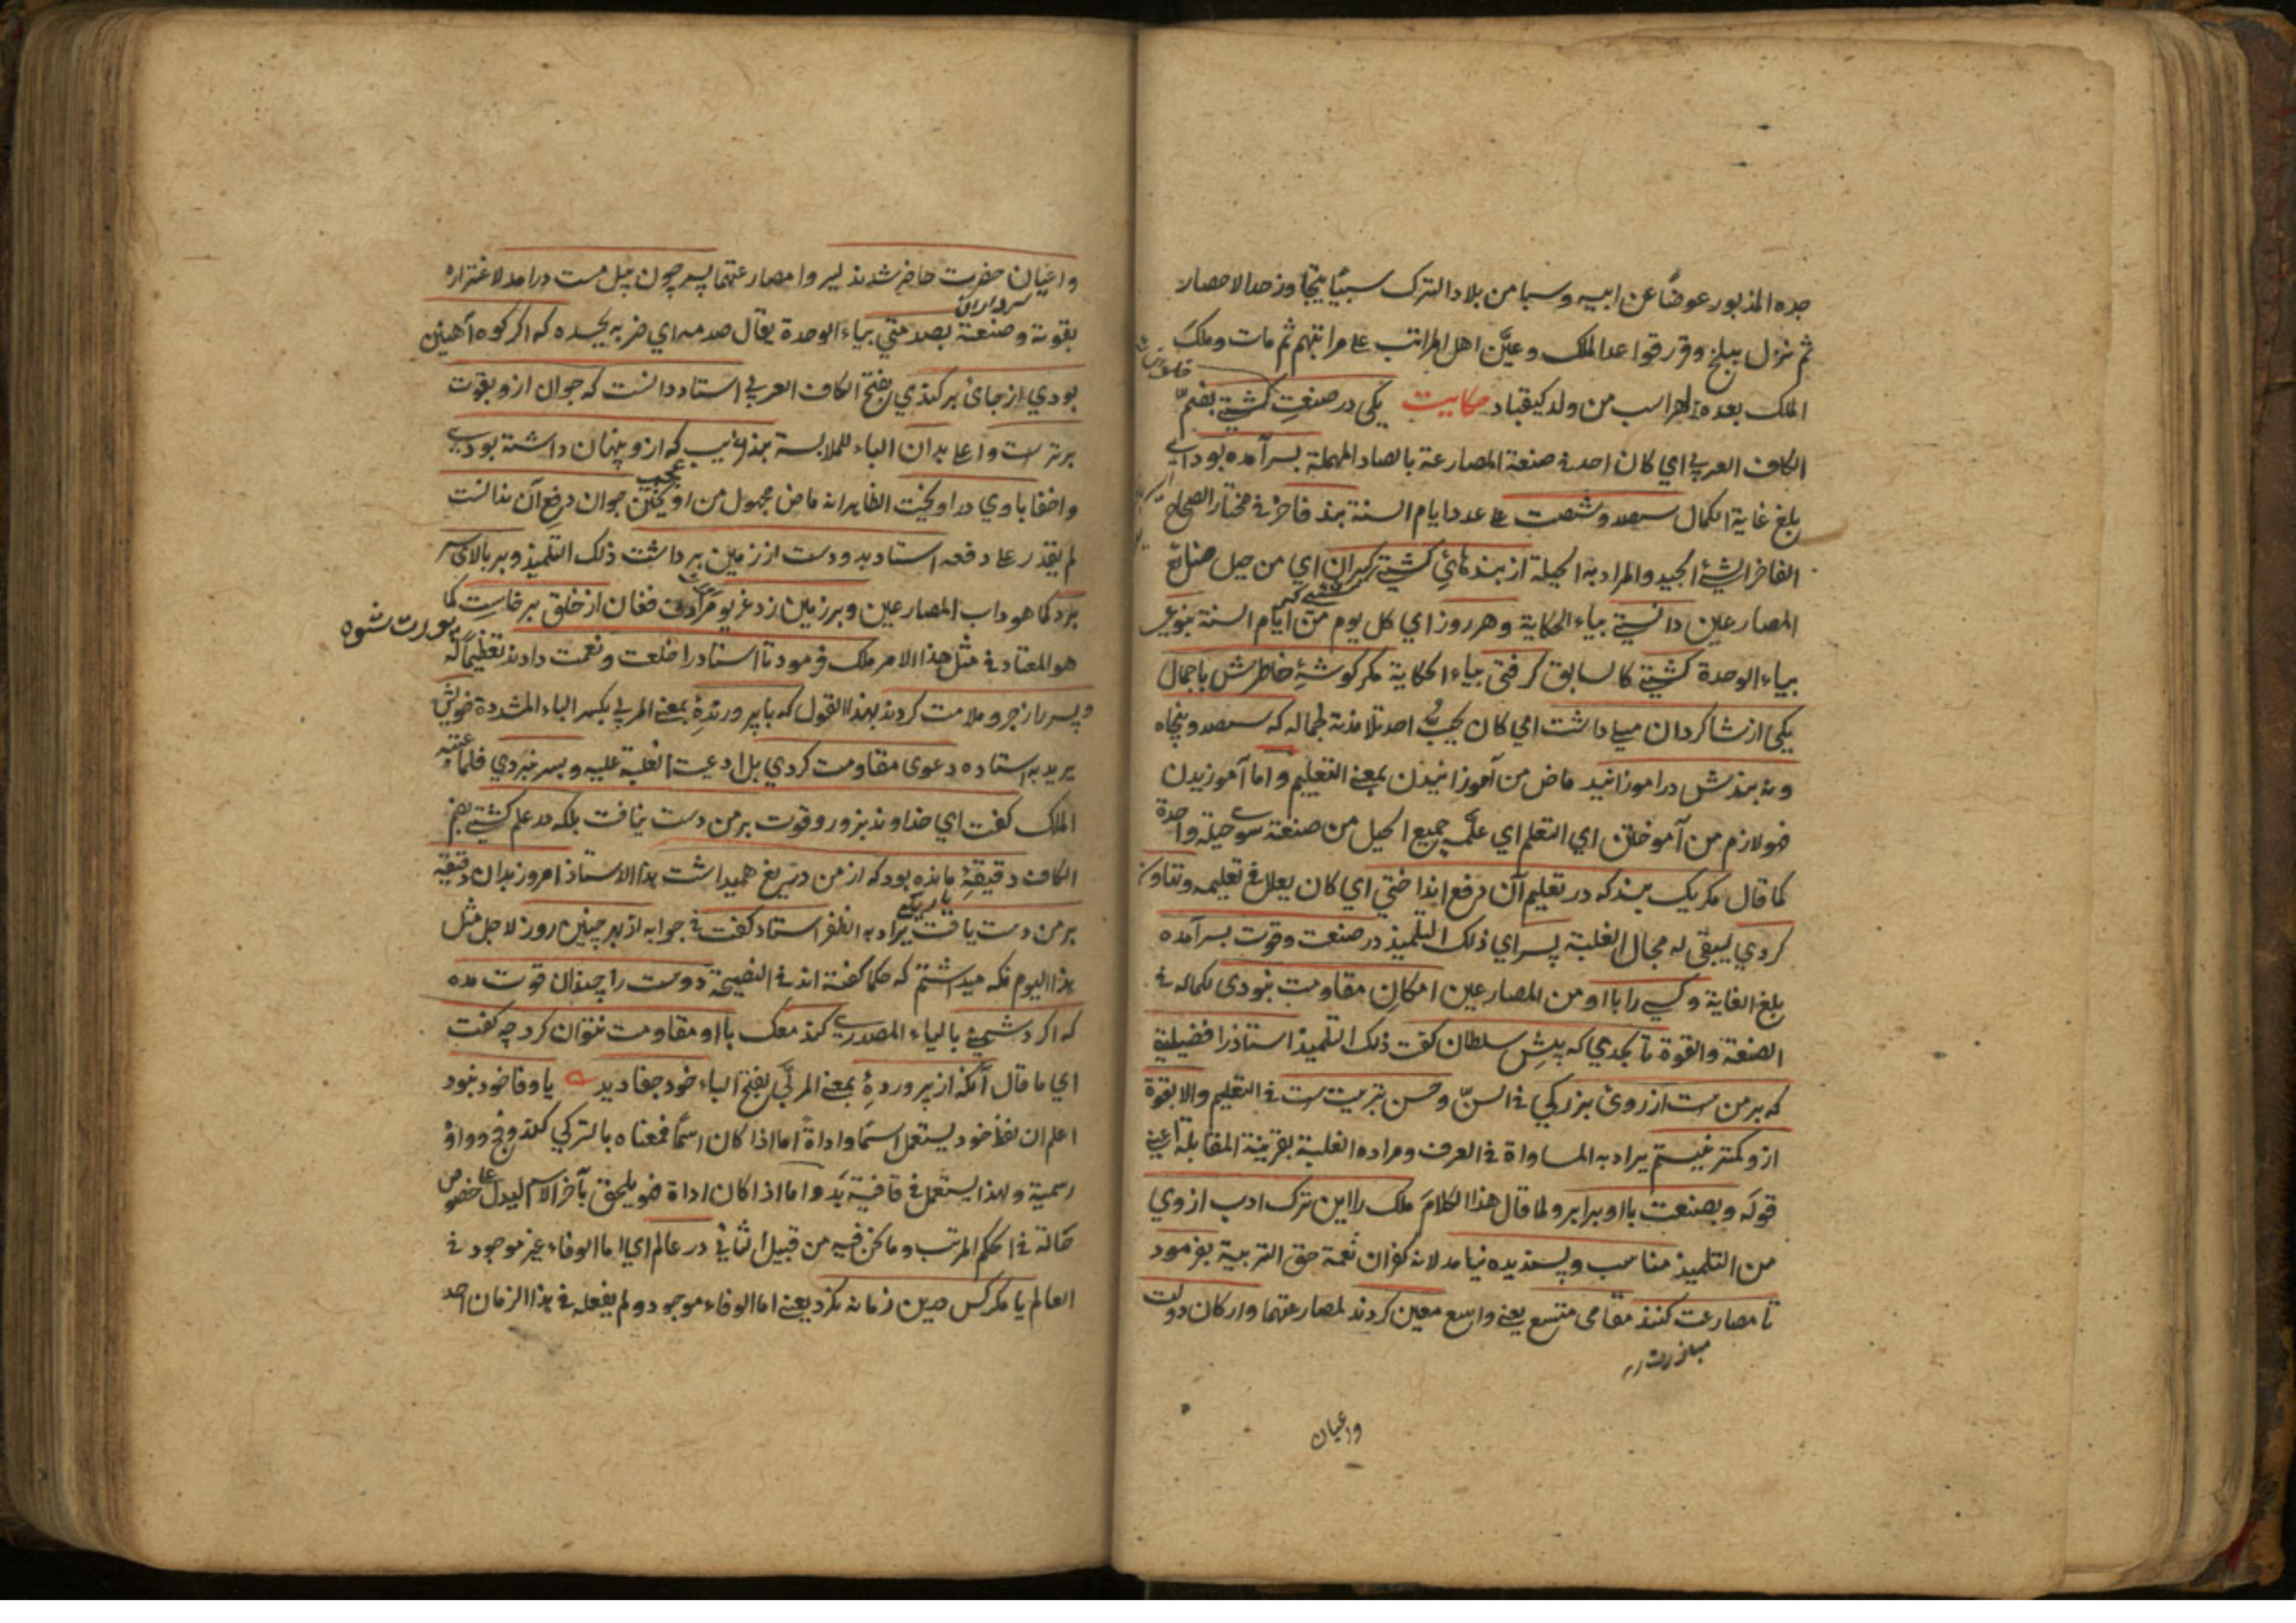 جده المذبور عوضًا عن ابيه وسبا من بلاد الترك سبيًا يتجاوز حد الاحصار
ثم نزل ببلخ وقرر قواعد الملك وعيّن اهل المراتب على مراتبهم ثم مات وملك
الملك بعده لهراسب من ولد كيقباد حكايت يكى در صنعت كشتى بضمّ
الكاف العربي اي كان احد في صنعة المصارعة بالصاد المهملة بسر آمده بود اي
بلغ غاية الكمال سيصد وشصت على عدد ايام السنة بند فاخر في مختار الصحاح
الفاخر الشئ الجيد والمراد به الحيلة از بندهاى كشتى كيران اي من حيل صنائع
المصارعين دانستى بياء الحكاية وهر روز اي كل يوم من ايام السنة بنوعى
بياء الوحدة كشتى كالسابق كرفتى بياء الحكاية مكر كوشۀ خاطرش باجمال
يكى از شاكردان ميلى داشت اي كان يحب احد تلامذته لجماله كه سيصد وپنجاه
ونه بندش در اموزانيد ماض من آموزانيدن بمعنى التعليم واما آموزيدن
فهو لازم من آموختن اي التعلم اي علّمه جميع الحيل من صنعته سوى حيلة واحدة
كما قال مكر يك بند كه در تعليم آن دفع انداختى اي كان يعلل في تعليمه ويتاون
كردي ليبقى له مجال الغلبة پسر اي ذلك التلميذ در صنعت وقوت بسر آمده
بلغ الغاية وكسى را با او من المصارعين امكان مقاومت نبودى لكماله في
الصنعة والقوة تا بحدي كه پيش سلطان كفت ذلك التلميذ استاذ را فضيلتى
كه بر من ست از روى بزركي في السنّ وحسن تربيت ست في التعليم والا بقوة
ازو كمتر نيستم يراد به المساواة في العرف ومراده الغلبة بقرينة المقابلة اعنى
قوله وبصنعت با او برابر ولما قال هذا الكلام ملك را اين ترك ادب از وي
من التلميذ مناسب وپسنديده نيامد لانه كفران نعمة حق التربية بفرمود
تا مصارعت كنند مقامى متسع يعنى واسع معين كردند لمصارعتهما واركان دولت
واعيان
واعيان حضرت حاضر شدند ليروا مصارعتهما پسر چون پيل مست درامد لاغتراره
سرداران
بقوته وصنعته بصدمتى بياء الوحدة يقال صدمه اي ضربه بجسده كه اكر كوه آهنين
بودي از جاى بر كندي بفتح الكاف العربي استاد دانست كه جوان ازو بقوت
برترست واعلى بدان الباء للملابسة بند غريب كه ازو پنهان داشته بود اي
عجيب
واخفا با وي در اويخت الظاهر انه ماض مجهول من اويختن جوان دفع آن ندانست
لم يقدر على دفعه استاد بدو دست از زمين برداشت ذلك التلميذ وبر بالاى سر
برد كما هو داب المصارعين وبر زمين زد غريو مرادف فغان از خلق برخاست كما
هو المعتاد في مثل هذا الامر ملك فرمود تا استاد را خلعت ونعمت دادند تعظيمًا له
وپسر را زجر وملامت كردند بهذا القول كه با پرورندۀ بمعنى المربي بكسر الباء المشددة خويش
يريد به استاده دعوى مقاومت كردي بل ادعيت الغلبة عليه وبسر نبردي فلما عتبه
الملك كفت اي خداوند بزور وقوت بر من دست نيافت بلكه در علم كشتى بضم
الكاف دقيقۀ مانده بود كه از من دريغ هميداشت هذا الاستاذ امروز بدان دقيقه
بر من دست يافت يراد به الظفر استاد كفت في جوابه از بهر چنين روز لاجل مثل
هذا اليوم نكه ميداشتم كه حكما كفته اند في النصيحة دوست را چندان قوت مده
كه اكر دشمنى بالياء المصدري كند معك با او مقاومت نتوان كرد چه كفت
اي ما قال آنكه از پروردۀ بمعنى المربّى بفتح الباء خود جفا ديد يا وفا خود نبود
اعلم ان لفظ خود يستعمل اسمًا واداةً اما اذا كان اسمًا فمعناه بالتركي كندو في وواو
رسمية ولهذا يستعمل في قافية بد واما اذا كان اداة فهو يلحق بآخر الاسم ليدل على خصوص
حالة في الحكم المرتب وما نحن فيه من قبيل الثاني در عالم اي اما الوفاء غير موجود في
العالم يا مكر كس درين زمانه نكرد يعنى اما الوفاء موجود ولم يفعله في هذا الزمان احد